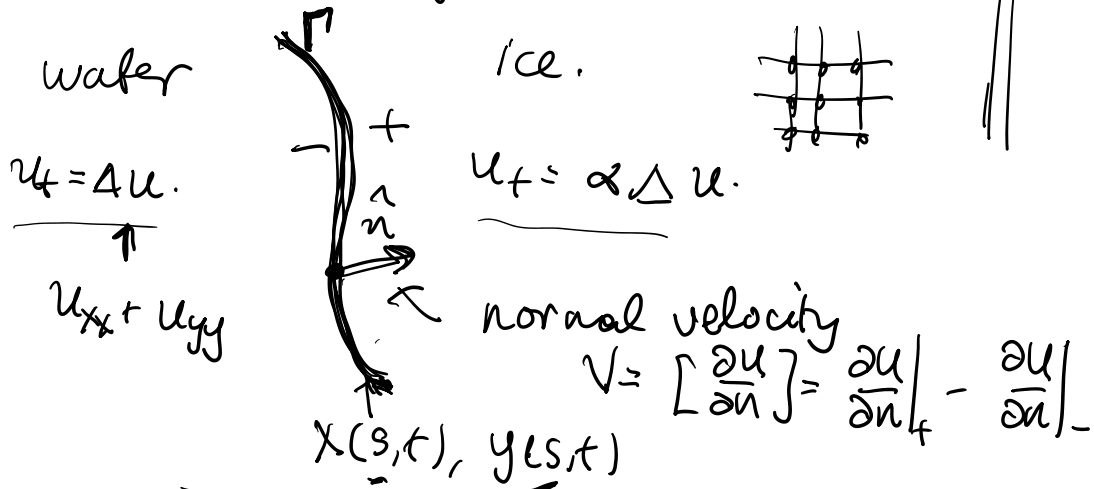 Γ
water ice.
− +
u_t = Δu. u_t = α Δ u.
n̂
u_xx + u_yy
normal velocity
V = [∂u/∂n] = ∂u/∂n|_+ − ∂u/∂n|_−
X(s,t), y(s,t)